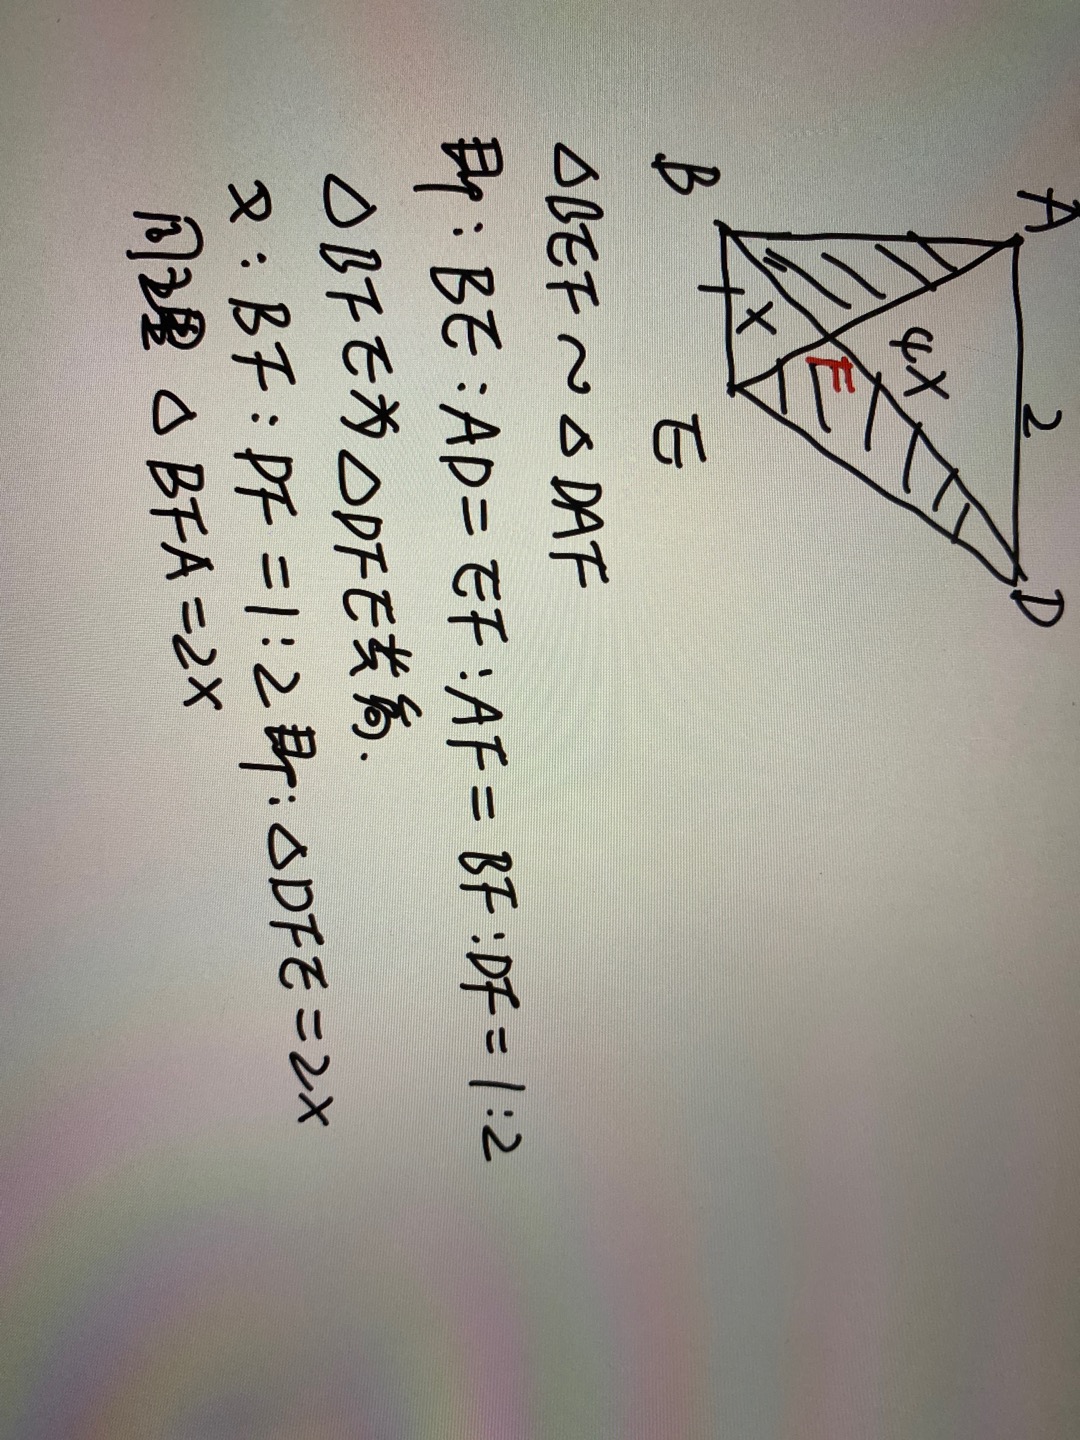 A
2
D
4X
F
X
1
B
E
△BEF ~ △DAF
即:BE:AD=EF:AF=BF:DF=1:2
△BFE为△DFE共高.
又:BF:DF=1:2即:△DFE=2X
同理△BFA=2X